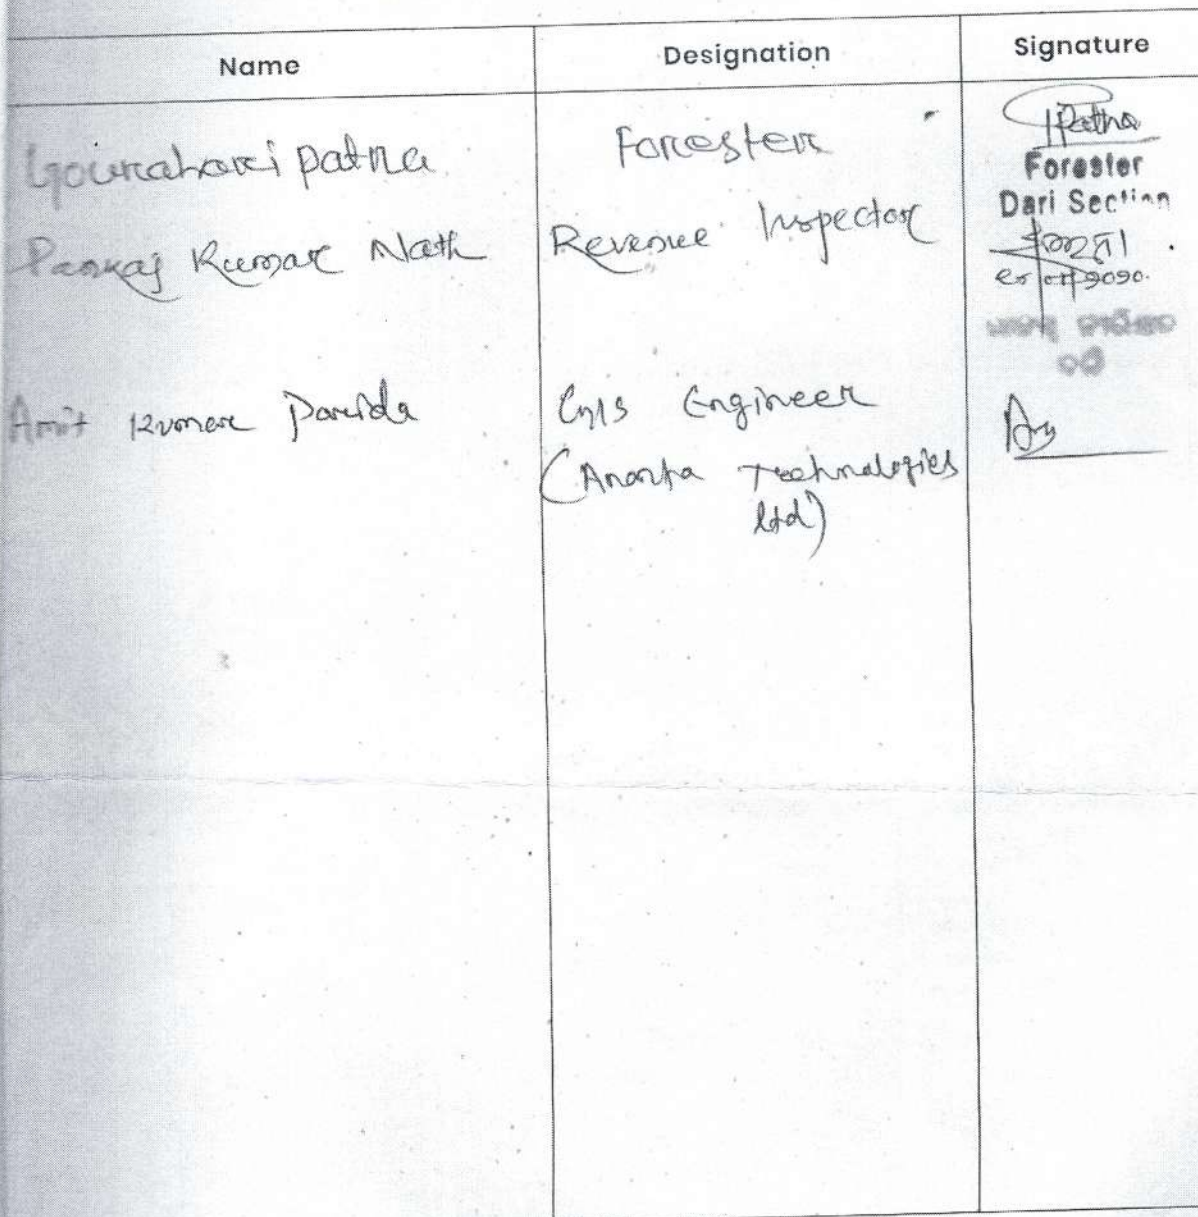 Name Designation Signature
Gourahari patra Forester Patra
Forester
Dari Section
Pankaj Kumar Nath Revenue Inspector
Amit Kumar Parida GIS Engineer
(Ananta Technologies
ltd)